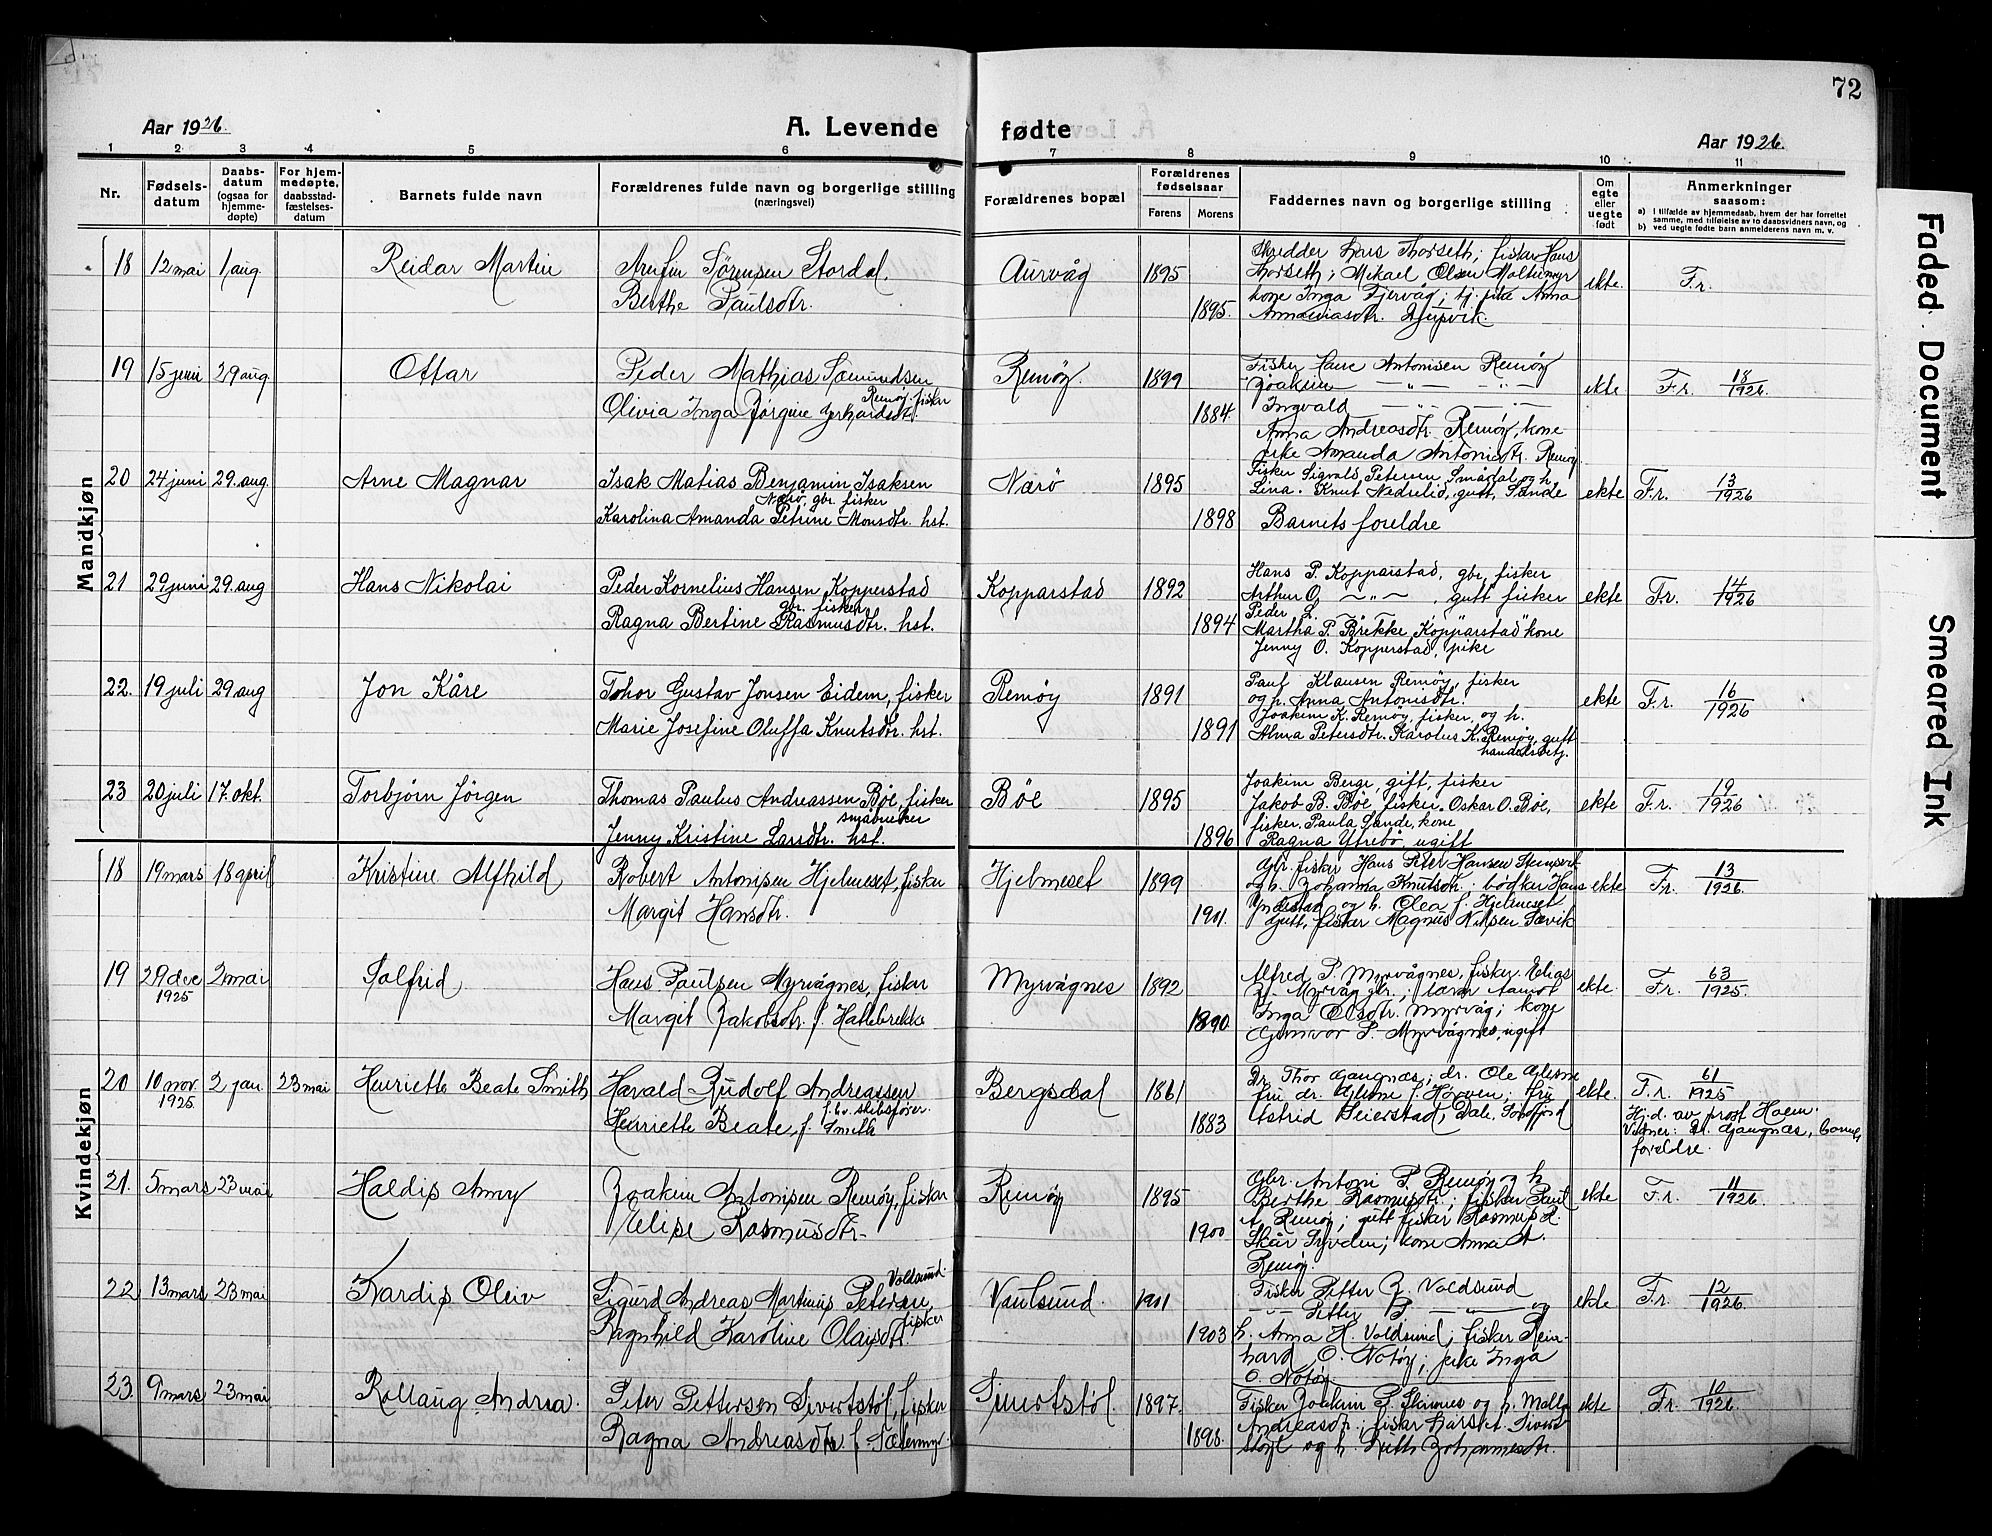 72
Aar 1926.
A. Levende fødte
Aar 1926.
1 2 3 4 5 6 7 8 9 10 11
Nr.
Fødsels-
datum
Daabs-
datum
(ogsaa for
hjemme-
døpte)
For hjem-
medøpte,
daabsstad-
fæstelses-
datum
Barnets fulde navn
Forældrenes fulde navn og borgerlige stilling
(næringsvei)
Forældrenes bopæl
Forældrenes
fødselsaar
Farens Morens
Faddernes navn og borgerlige stilling
Om
egte
eller
uegte
født
Anmerkninger
saasom:
a) I tilfælde av hjemmedaab, hvem der har forrettet
samme, med tilføielse av to daabsvidners navn, og
b) ved uegte fødte barn anmelderens navn m. v.
Mandkjøn
18 12 mai 1 aug. Reidar Martin
Arnfin Sørensen Stordal.
Berthe Paulsdtr.
Aurvåg 1895 1895.
Skredder Lars Thorseth; fiskar Hans
Thorseth; Mikael Olsen Moltumyr
kone Inga Fjervåg; tj. pike Anna
Ananiasdtr. Djupvik.
ekte. F.r.
19 15 juni 29 aug Ottar
Peder Mathias Sæmundsen
Remøy. fiskar
Olivia Inga Jørgine Gerhardsdtr.
Remøy. 1899 1884
Fisker Lars Antonisen Remøy
Joakim — " —
Ingvald — " —
Anna Andreasdtr. Remøy, kone
pike Amanda Antonisdtr. Remøy
ekte F.r. 18/1926.
20 24 juni 29. aug. Arne Magnar
Isak Matias Benjamin Isaksen
Nærø, gbr. fisker
Karolina Amanda Petrine Monsdtr. hst.
Nærø 1895 1898
Fisker Sigvald Petersen Smådal og h.
Lina. Knut Nedrelid, gutt, Sande
Barnets foreldre
ekte F.r. 13/1926
21 29 juni 29. aug Hans Nikolai
Peder Kornelius Hansen Kopperstad
gbr. fisker
Ragna Bertine Rasmusdtr. hst.
Kopparstad 1892 1894
Hans P. Kopparstad, gbr, fisker
Arthur O. — " — , gutt fisker
Peder L.
Martha P. Brekke, Kopparstad kone
Jenny O. Kopperstad, pike
ekte F.r. 14/1926
22. 19 juli 29 aug Jon Kåre
Tohor Gustav Jonsen Eidem, fisker
Marie Josefine Oluffa Knutsdtr. hst.
Remøy 1891 1891
Paul Klausen Remøy, fisker
og h. Anna Antonisdtr.
Joakim K. Remøy, fisker, og h.
Alma Petersdtr. Karolus K. Remøy, gutt
handelsbetj.
ekte F.r. 16/1926
23 20 juli 17. okt. Torbjørn Jörgen
Thomas Paulus Andreassen Bøe, fisker
småbruker
Jenny Kristine Larsdtr. hst.
Bøe 1895 1896
Joakim Berge, gift, fisker
Jakob B. Bøe, fisker. Oskar O. Bøe,
fisker. Paula Sande, kone
Ragna Ytrebø, ugift
ekte F.r. 19/1926
Kvindekjøn
18 19 mars 18 april Kristine Alfhild
Robert Antonisen Hjelmeset, fiskar
Margit Hansdtr.
Hjelmeset 1899 1901.
Gbr. fiskar Hans Peter Hansen
og h. Johanna Knutsdtr.; bødkar Hans
og h. Olea f. Hjelmeset
gutt, fiskar Magnus Nilsen Sævik
ekte F.r. 13/1926.
19 29 dec 2 mai Solfrid
1925
Hans Paulsen Myrvågnes, fiskar
Margit Jakobsdtr. f. Hattebrekke
Myrvågnes 1892 1890
Alfred P. Myrvågnes, fiskar. Elias
J. Myrvåg gbr.; lærar Aamot
Inga Olsdtr. Myrvåg; kone
Gunvor P. Myrvågnes, ugift
ekte. F.r. 63/1925.
20 10 nov. 2 jan. 23 mai Henriette Beate Smith
1925.
Harald Rudolf Andreassen
f.bv. skibsfører.
Henriette Beate, f. Smith
Bergsdal 1861 1883
Dr. Thor Gangnæs; dr. Ole Gjerme
fru dr. Gjerme f. Høyven; fru
Astrid Seierstad, Dale, Søndfjord
ekte. F.r. 61/1925
Hj.d. av prost Holm.
Vidner: Dr. Gangnæs, barnets
foreldre.
21. 5 mars 23 mai Haldis Anny
Joakim Antonisen Remøy, fiskar
Elise Rasmusdtr.
Remøy 1895 1900
Gbr. Antoni P. Remøy og h
Berthe Rasmusdtr.; fiskar Paul
A. Remøy; gutt fiskar Rasmus R.
Skår Syvden; kone Anna A.
Remøy.
ekte F.r. 11/1926.
22 13 mars 23 mai Kardis Oleiv
Voldsund.
Sigurd Andreas Martinus Petersen,
fisker
Ragnhild Karoline Olaisdtr.
Vaulsund. 1901 1903
Fisker Petter J. Voldsund
— " — Petter B — " — og
h. Anna H. Voldsund; fiskar Rein-
hard O. Notøy; pike Inga
O. Notøy
ekte F.r. 12/1926.
23. 9 mars 23 mai Rollaug Andrea.
Peter Pettersen Sivertstøl, fisker
Ragna Andreasdtr. f. Sætermyr.
Sivertstøl. 1897. 1898.
Fisker Joakim P. og h.
Andreasdtr.; fiskar
støyl og h. Ruth Johannesdtr.
ekte F.r. 10/1926.
Faded Document
Smeared Ink